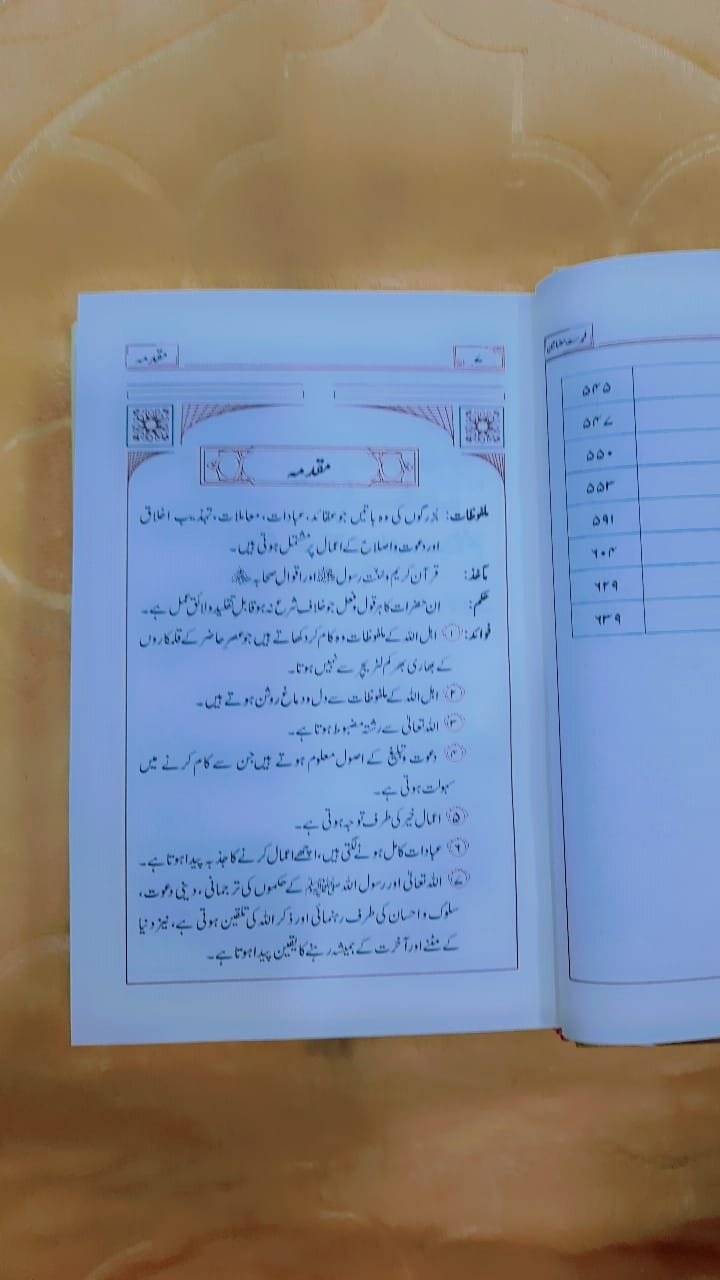 مقدمہ
۷
مقدمہ
ملفوظات: بزرگوں کی وہ باتیں جو عقائد، عبادات، معاملات، تہذیب اخلاق
اور دعوت و اصلاح کے اعمال پر مشتمل ہوتی ہیں۔
مآخذ: قرآن کریم و سنت رسول ﷺ اور اقوال صحابہ
حکم: ان حضرات کا ہر قول و فعل جو خلاف شرع نہ ہو قابل تقلید و لائق عمل ہے۔
فوائد: ① اہل اللہ کے ملفوظات وہ کام کر دکھاتے ہیں جو عصر حاضر کے قلمکاروں
کے بھاری بھر کم لٹریچر سے نہیں ہوتا۔
② اہل اللہ کے ملفوظات سے دل و دماغ روشن ہوتے ہیں۔
③ اللہ تعالیٰ سے رشتہ مضبوط ہوتا ہے۔
④ دعوت و تبلیغ کے اصول معلوم ہوتے ہیں جن سے کام کرنے میں
سہولت ہوتی ہے۔
⑤ اعمال خیر کی طرف توجہ ہوتی ہے۔
⑥ عبادات کامل ہونے لگتی ہیں، اچھے اعمال کرنے کا جذبہ پیدا ہوتا ہے۔
⑦ اللہ تعالیٰ اور رسول اللہ ﷺ کے حکموں کی ترجمانی، دینی دعوت،
سلوک و احسان کی طرف رہنمائی اور ذکر اللہ کی تلقین ہوتی ہے، نیز دنیا
کے مٹنے اور آخرت کے ہمیشہ رہنے کا یقین پیدا ہوتا ہے۔
فہرست مضامین
۵۴۵
۵۴۷
۵۵۰
۵۵۳
۵۹۱
۶۰۴
۶۲۹
۶۳۹